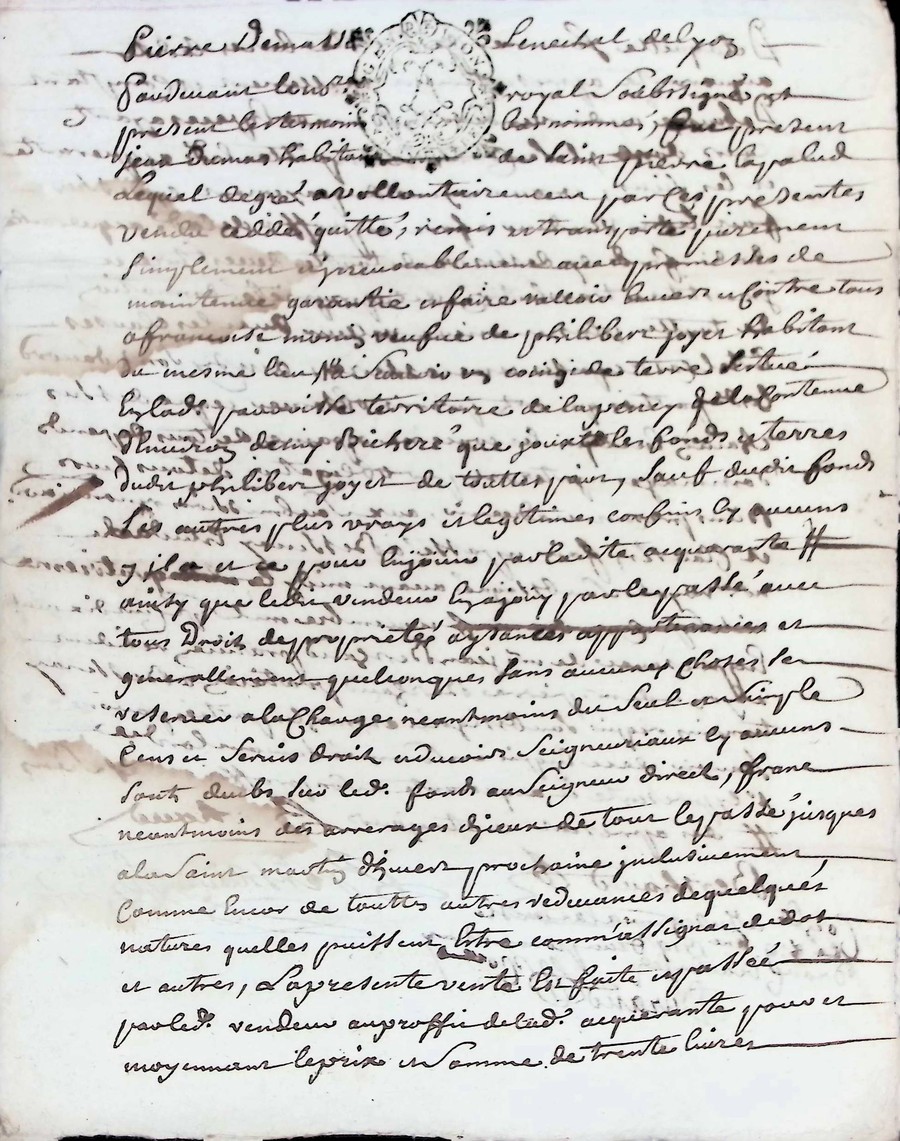 Pierre Dumas Senechal de lyon
Pardevant le no.re royal Soubsigné et
present les tesmoins bas nommés, fut present
jean Dumas habitant de Saint pierre la palud
Lequel de gré a vollontairement par Ces presentes
vendu cedde quitté, remis et transporté purement
Simplement avec promesses de
maintenue garantie et faire valloir Envers et Contre tous
a francoise veufue de philibert joyet habitant
du mesme lieu un coing de terre Scitué
En lad. parroisse territoire de la Contenue
d'Enuiron demy Bicheré que jouxte les fonds et terres
dudit philibert joyet de touttes pars, Sauf dudit fonds
Les autres plus vrays et legitimes confins Sy aucuns
y il a et ce pour En jouir par la dite acquerante
ainsy que le dit vendeur En a jouy par le passé auec
tous Droits de proprieté aysances appartenances et
generallement quelconques Sans aucunes Choses Se
reserver a la Charge neantmoins du Seul et Simple
Cens et Seruis droits et deuoirs Seigneuriaux Sy aucuns
Sont deubs Sur led. fonds au Seigneur direct, franc
neantmoins des arrerages d'jceux de tout le passé jusques
a la Saint martin d'hyuert prochaine jnclusivement
Comme Encor de touttes autres reduances de quelques
natures quelles puissent Estre comm'assignat de dot
et autres, La presente vente Est faite et passée
par led. vendeur au proffit de lad. acquerante pour et
moyennant le prix et Somme de trente liures